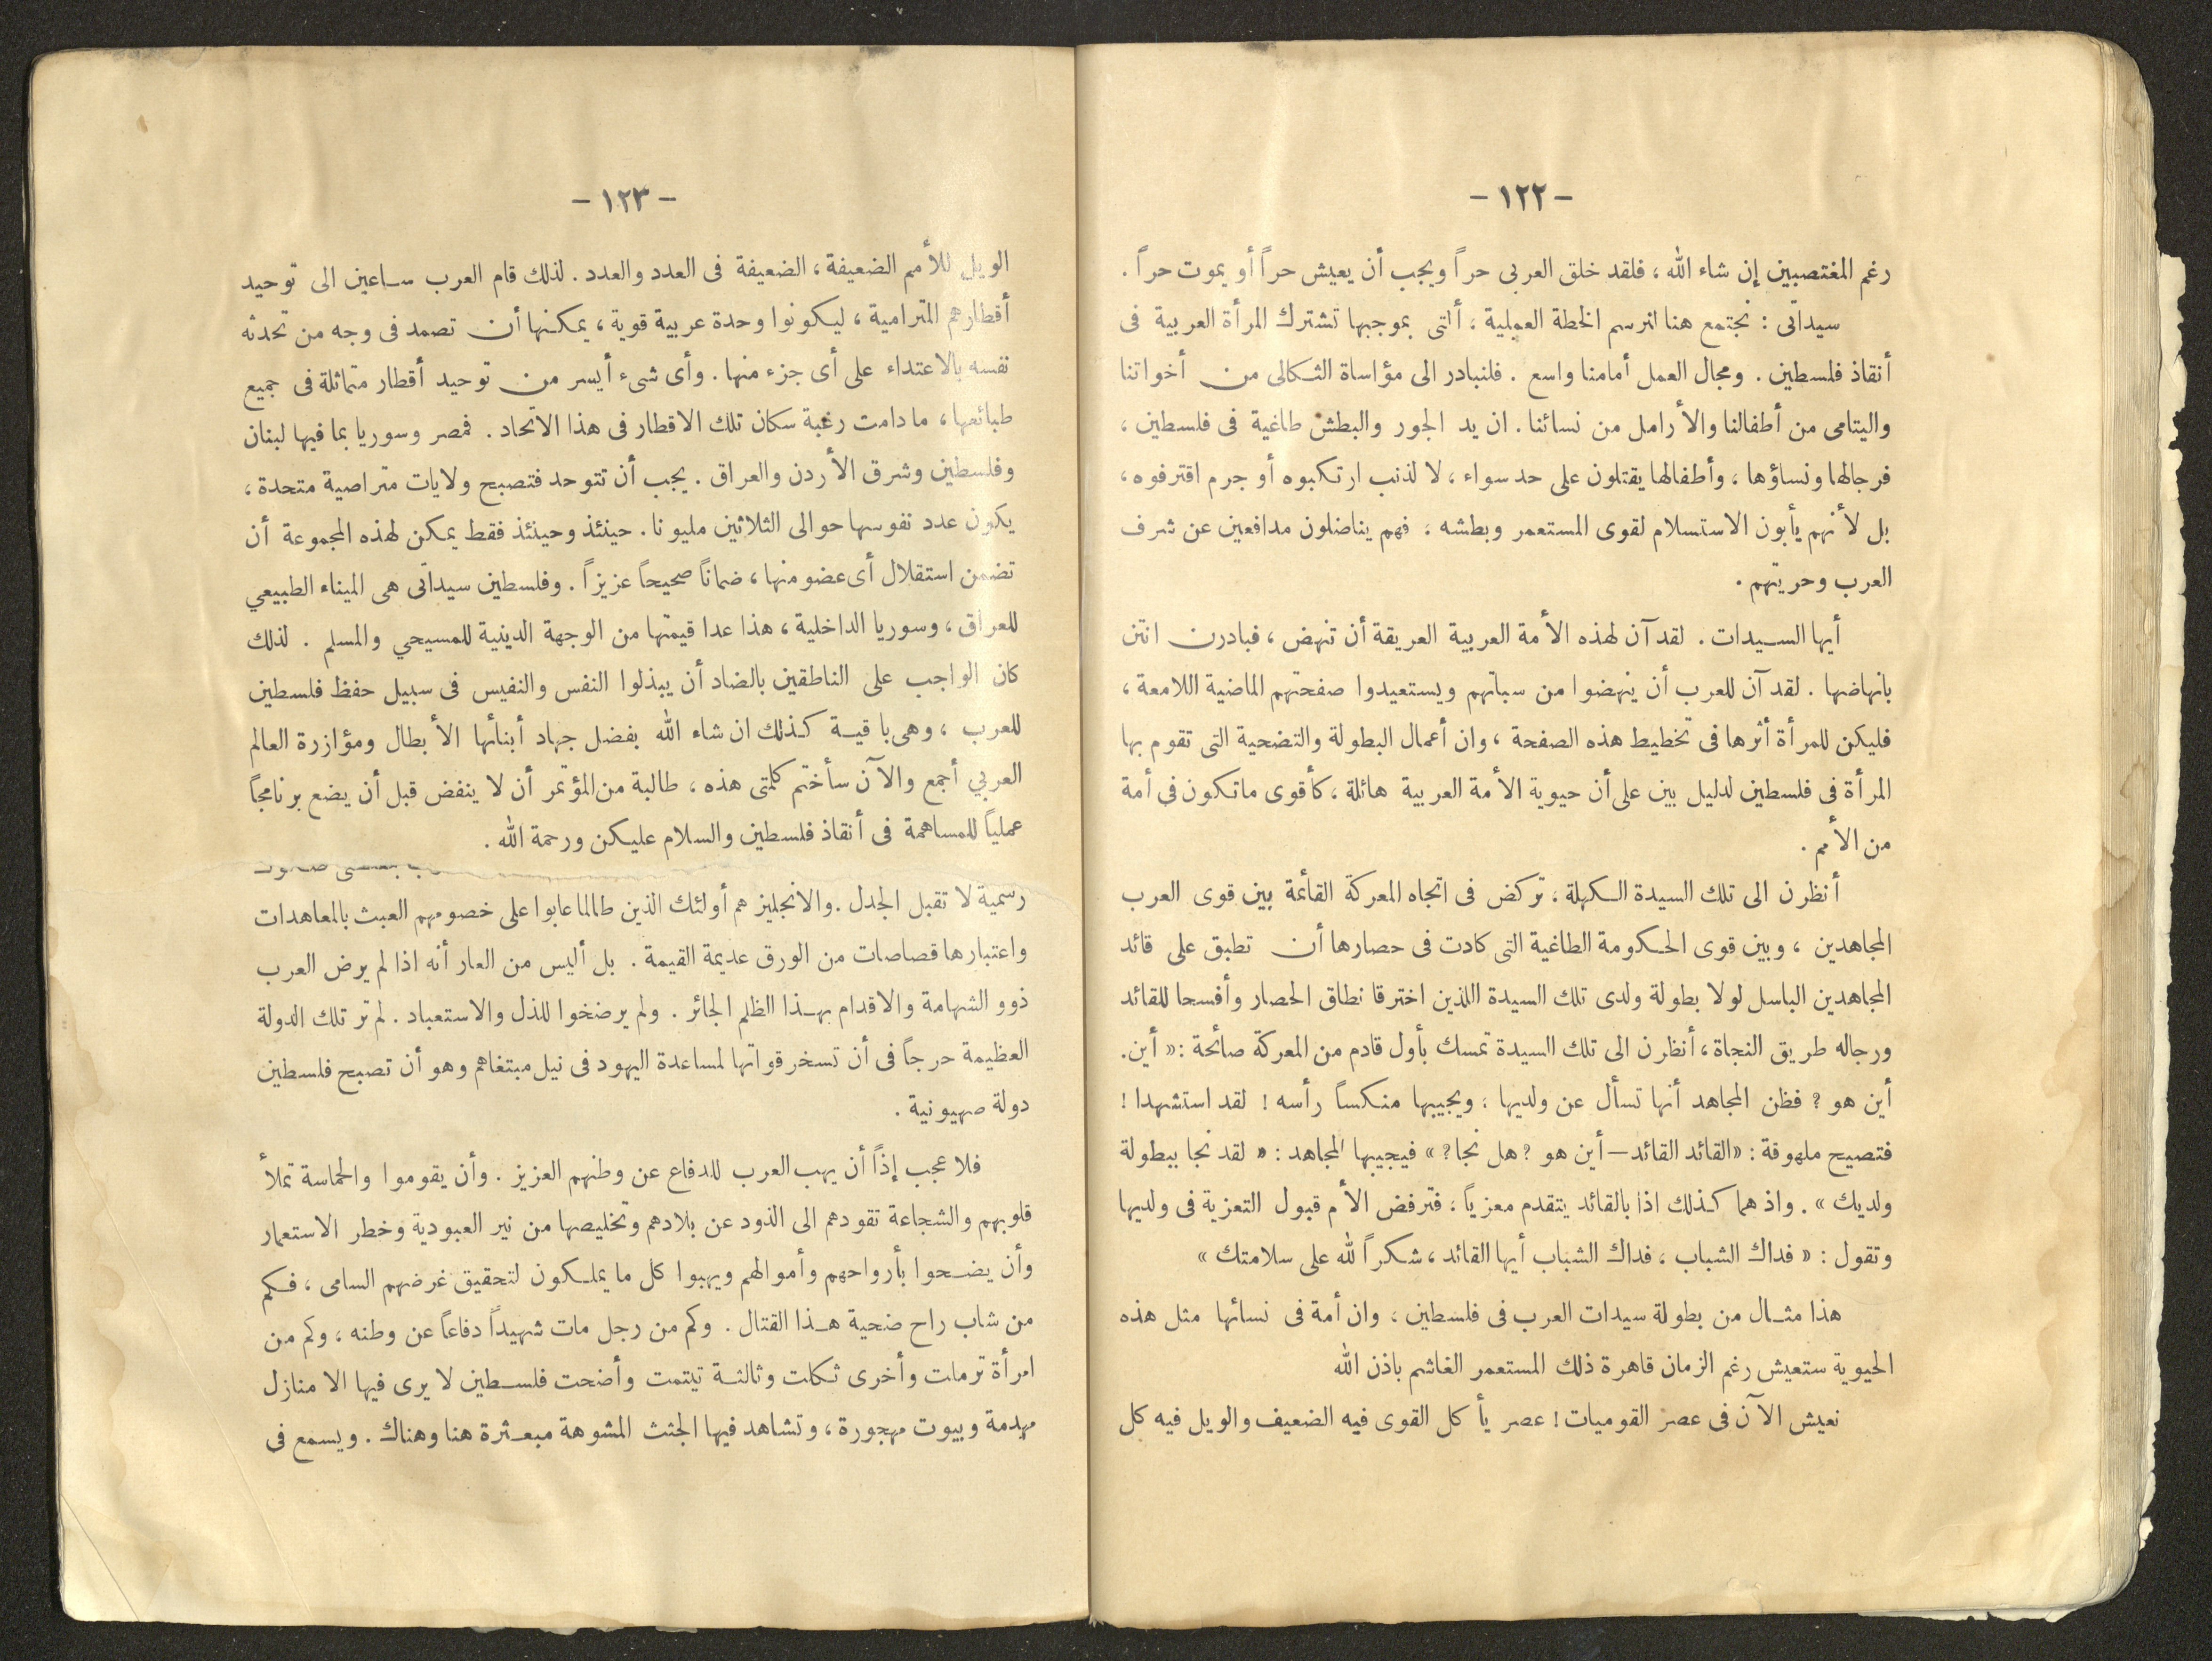 - ١٢٢ -
رغم المغتصبين إن شاء الله ، فلقد خلق العربى حراً ويجب أن يعيش حراً أو يموت حراً .
سيداتى : نجتمع هنا لنرسم الخطة العملية ، ألتى بموجبها تشترك المرأة العربية فى
أنقاذ فلسطين . ومجال العمل أمامنا واسع . فلنبادر الى مؤاساة الثكالى من أخواتنا
واليتامى من أطفالنا والأرامل من نسائنا . ان يد الجور والبطش طاغية فى فلسطين ،
فرجالها ونساؤها ، وأطفالها يقتلون على حد سواء ، لا لذنب ارتكبوه أو جرم اقترفوه ،
بل لأنهم يأبون الاستسلام لقوى المستعمر وبطشه ، فهم يناضلون مدافعين عن شرف
العرب وحريتهم .
أيها السيدات . لقد آن لهذه الأمة العربية العريقة أن تنهض ، فبادرن انتن
بانهاضها . لقد آن للعرب أن ينهضوا من سباتهم ويستعيدوا صفحتهم الماضية اللامعة ،
فليكن للمرأة أثرها فى تخطيط هذه الصفحة ، وان أعمال البطولة والتضحية التى تقوم بها
المرأة فى فلسطين لدليل بين على أن حيوية الأمة العربية هائلة ، كأقوى ماتكون في أمة
من الأمم .
أنظرن الى تلك السيدة الكهلة ، تركض فى اتجاه المعركة القائمة بين قوى العرب
المجاهدين ، وبين قوى الحكومة الطاغية التى كادت فى حصارها أن تطبق على قائد
المجاهدين الباسل لولا بطولة ولدى تلك السيدة اللذين اخترقا نطاق الحصار وأفسحا للقائد
ورجاله طريق النجاة ، أنظرن الى تلك السيدة تمسك بأول قادم من المعركة صائحة : « أين.
أين هو ؟ فظن المجاهد أنها تسأل عن ولديها ، ويجيبها منكساً رأسه ! لقد استشهدا !
فتصيح ملهوفة : «القائد القائد — أين هو ؟ هل نجا؟ » فيجيبها المجاهد : « لقد نجا ببطولة
ولديك » . واذ هما كذلك اذا بالقائد يتقدم معزياً ، فترفض الأم قبول التعزية فى ولديها
وتقول : « فداك الشباب ، فداك الشباب أيها القائد ، شكراً لله على سلامتك »
هذا مثال من بطولة سيدات العرب فى فلسطين ، وان أمة فى نسائها مثل هذه
الحيوية ستعيش رغم الزمان قاهرة ذلك المستعمر الغاشم باذن الله
نعيش الآن فى عصر القوميات ! عصر يأكل القوى فيه الضعيف والويل فيه كل
- ١٢٣ -
الويل للأمم الضعيفة ، الضعيفة فى العدد والعدد . لذلك قام العرب ساعين الى توحيد
أقطارهم المترامية ، ليكونوا وحدة عربية قوية ، يمكنها أن تصمد فى وجه من تحدثه
نفسه بالاعتداء على أى جزء منها . وأى شىء أيسر من توحيد أقطار متماثلة فى جميع
طبائعها ، ما دامت رغبة سكان تلك الاقطار فى هذا الاتحاد . فمصر وسوريا بما فيها لبنان
وفلسطين وشرق الأردن والعراق . يجب أن تتوحد فتصبح ولايات متراصية متحدة ،
يكون عدد نفوسها حوالى الثلاثين مليونا . حينئذ وحينئذ فقط يمكن لهذه المجموعة أن
تضمن استقلال أى عضو منها ، ضماناً صحيحاً عزيزاً . وفلسطين سيداتى هى الميناء الطبيعي
للعراق ، وسوريا الداخلية ، هذا عدا قيمتها من الوجهة الدينية للمسيحي والمسلم . لذلك
كان الواجب على الناطقين بالضاد أن يبذلوا النفس والنفيس فى سبيل حفظ فلسطين
للعرب ، وهى باقية كذلك ان شاء الله بفضل جهاد أبنائها الأبطال ومؤازرة العالم
العربي أجمع والآن سأختم كلمتى هذه ، طالبة من المؤتمر أن لا ينفض قبل أن يضع برنامجاً
عملياً للمساهمة فى أنقاذ فلسطين والسلام عليكن ورحمة الله .
رسمية لا تقبل الجدل . والانجليز هم أولئك الذين طالما عابوا على خصومهم العبث بالمعاهدات
واعتبارها قصاصات من الورق عديمة القيمة . بل أليس من العار أنه اذا لم يرض العرب
ذوو الشهامة والاقدام بهذا الظلم الجائر . ولم يرضخوا للذل والاستعباد . لم تر تلك الدولة
العظيمة حرجاً فى أن تسخر قواتها لمساعدة اليهود فى نيل مبتغاهم وهو أن تصبح فلسطين
دولة صهيونية .
فلا عجب إذاً أن يهب العرب للدفاع عن وطنهم العزيز . وأن يقوموا والحماسة تملأ
قلوبهم والشجاعة تقودهم الى الذود عن بلادهم وتخليصها من نير العبودية وخطر الاستعمار
وأن يضحوا بأرواحهم وأموالهم ويهبوا كل ما يملكون لتحقيق غرضهم السامى ، فكم
من شاب راح ضحية هذا القتال . وكم من رجل مات شهيداً دفاعاً عن وطنه ، وكم من
امرأة ترملت وأخرى ثكلت وثالثة تيتمت وأضحت فلسطين لا يرى فيها الا منازل
مهدمة وبيوت مهجورة ، وتشاهد فيها الجثث المشوهة مبعثرة هنا وهناك . ويسمع فى